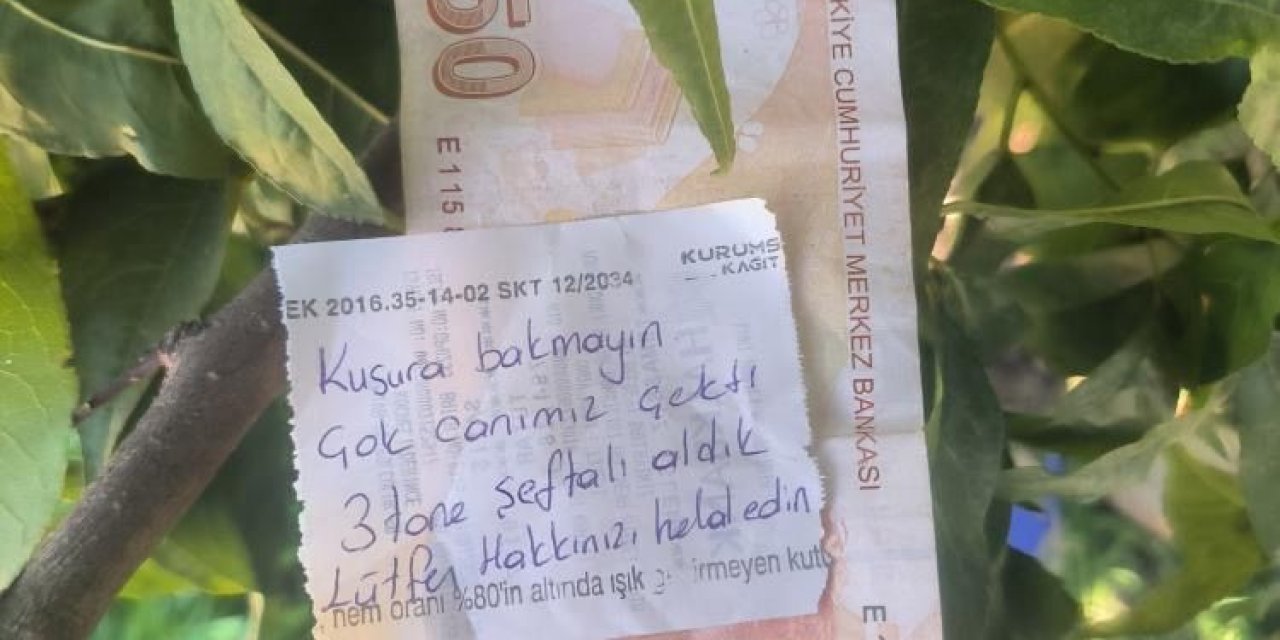 50
E 115
KİYE CUMHURİYET MERKEZ BANKASI
KURUMS
KAĞIT
EK 2016.35-14-02 SKT 12/2034
Kusura bakmayın
Çok canımız çekti
3 tane şeftali aldık
Lütfen Hakkınızı helal edin
nem oranı %80'in altında ışık irmeyen kutu
E